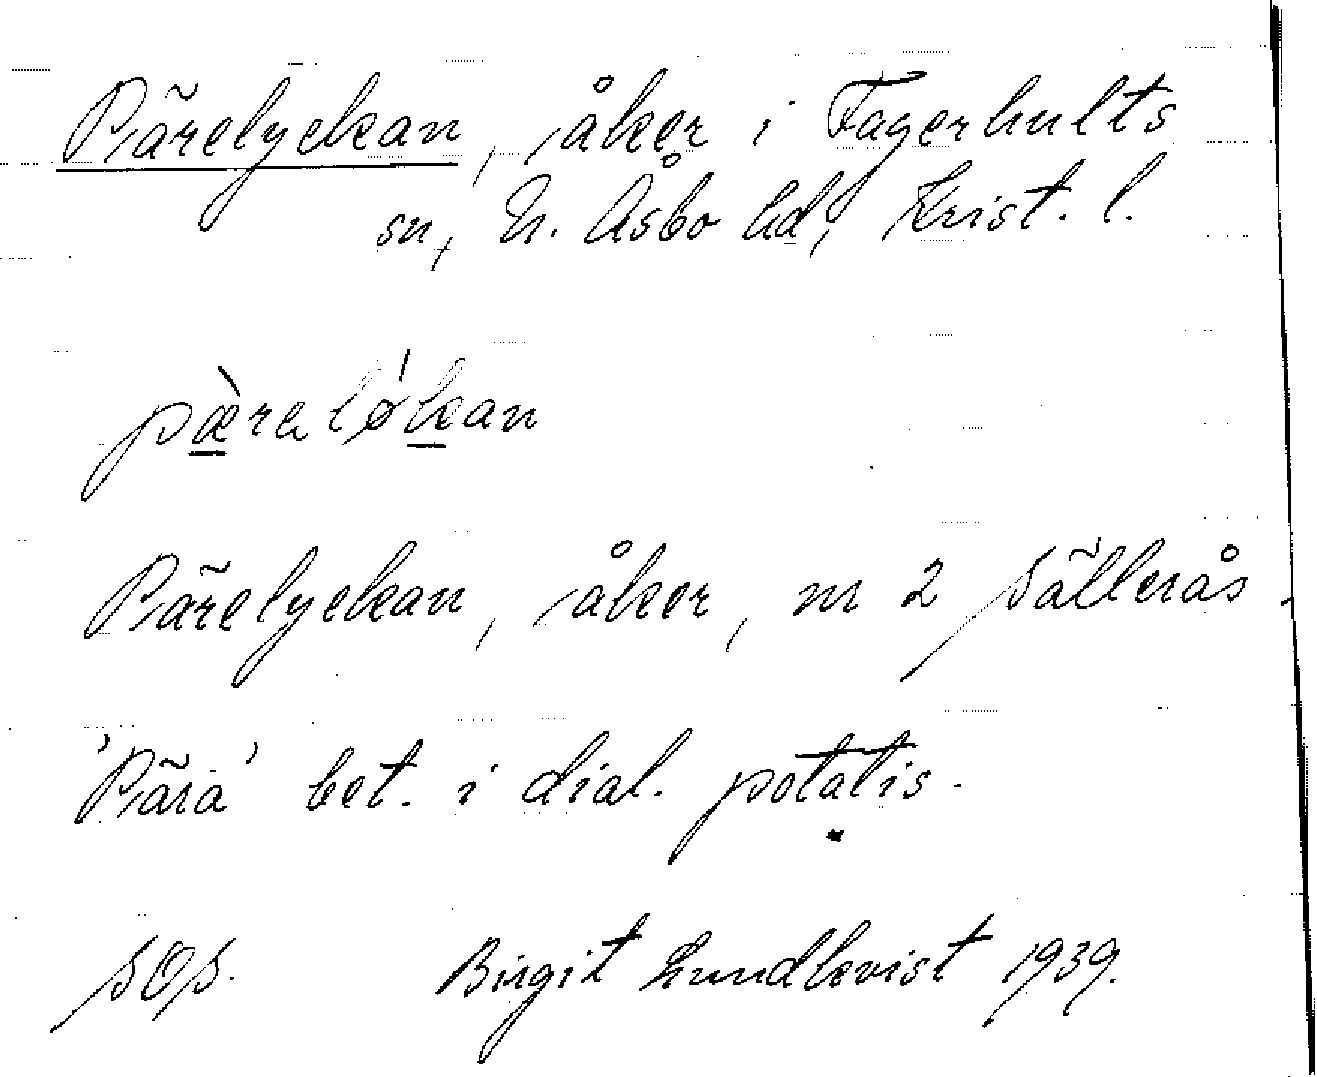 Pärelyckan, åker i Fagerhults
sn, N. Åsbo hd, Krist. l.
pæ̀reløkan
Pärelyckan, åker, nr 2 Sällerås.
'Pära' bet. i dial. potatis.
SOS. Birgit Lundkvist 1939.